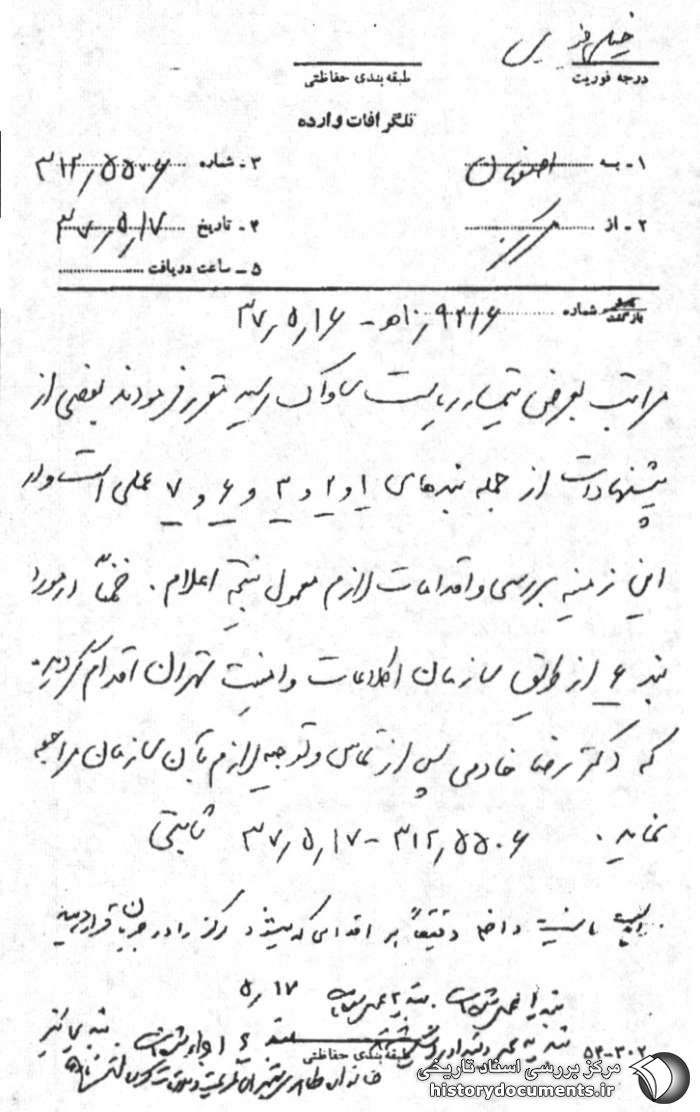 خیلی فوری
درجه فوریت
طبقه‌بندی حفاظتی
تلگرافات وارده
۱ - به اصفهان
۳ - شماره ۳۱۲٫۵۵۰۶
۲ - از مرکز
۴ - تاریخ ۳۷٫۵٫۱۷
۵ - ساعت دریافت
بازگشت شماره ۹۲۱۶٫ ۱۰ﻫ - ۳۷٫۵٫۱۶
مراتب بعرض تیمسار ریاست ساواک رسید مقرر فرمودند بعضی از
پیشنهادات از جمله بندهای ۱ و ۲ و ۳ و ۶ و ۷ عملی است و در
این زمینه بررسی و اقدامات لازم معمول نتیجه اعلام . ضمناً در مورد
بند ۶ از طریق سازمان اطلاعات و امنیت تهران اقدام گردید.
که دکتر رضا خادمی پس از تماس و توجیه لازم بآن سازمان مراجعه
نماید . ۳۱۲٫۵۵۰۶ - ۳۷٫۵٫۱۷ ثابتی
امنیت داخله دقیقاً بر اقداماتی که میشود مرکز را در جریان قرار دهید
۵٫۱۷
طبقه‌بندی حفاظتی
۵۴-۳۰۲
مرکز بررسی اسناد تاریخی
historydocuments.ir